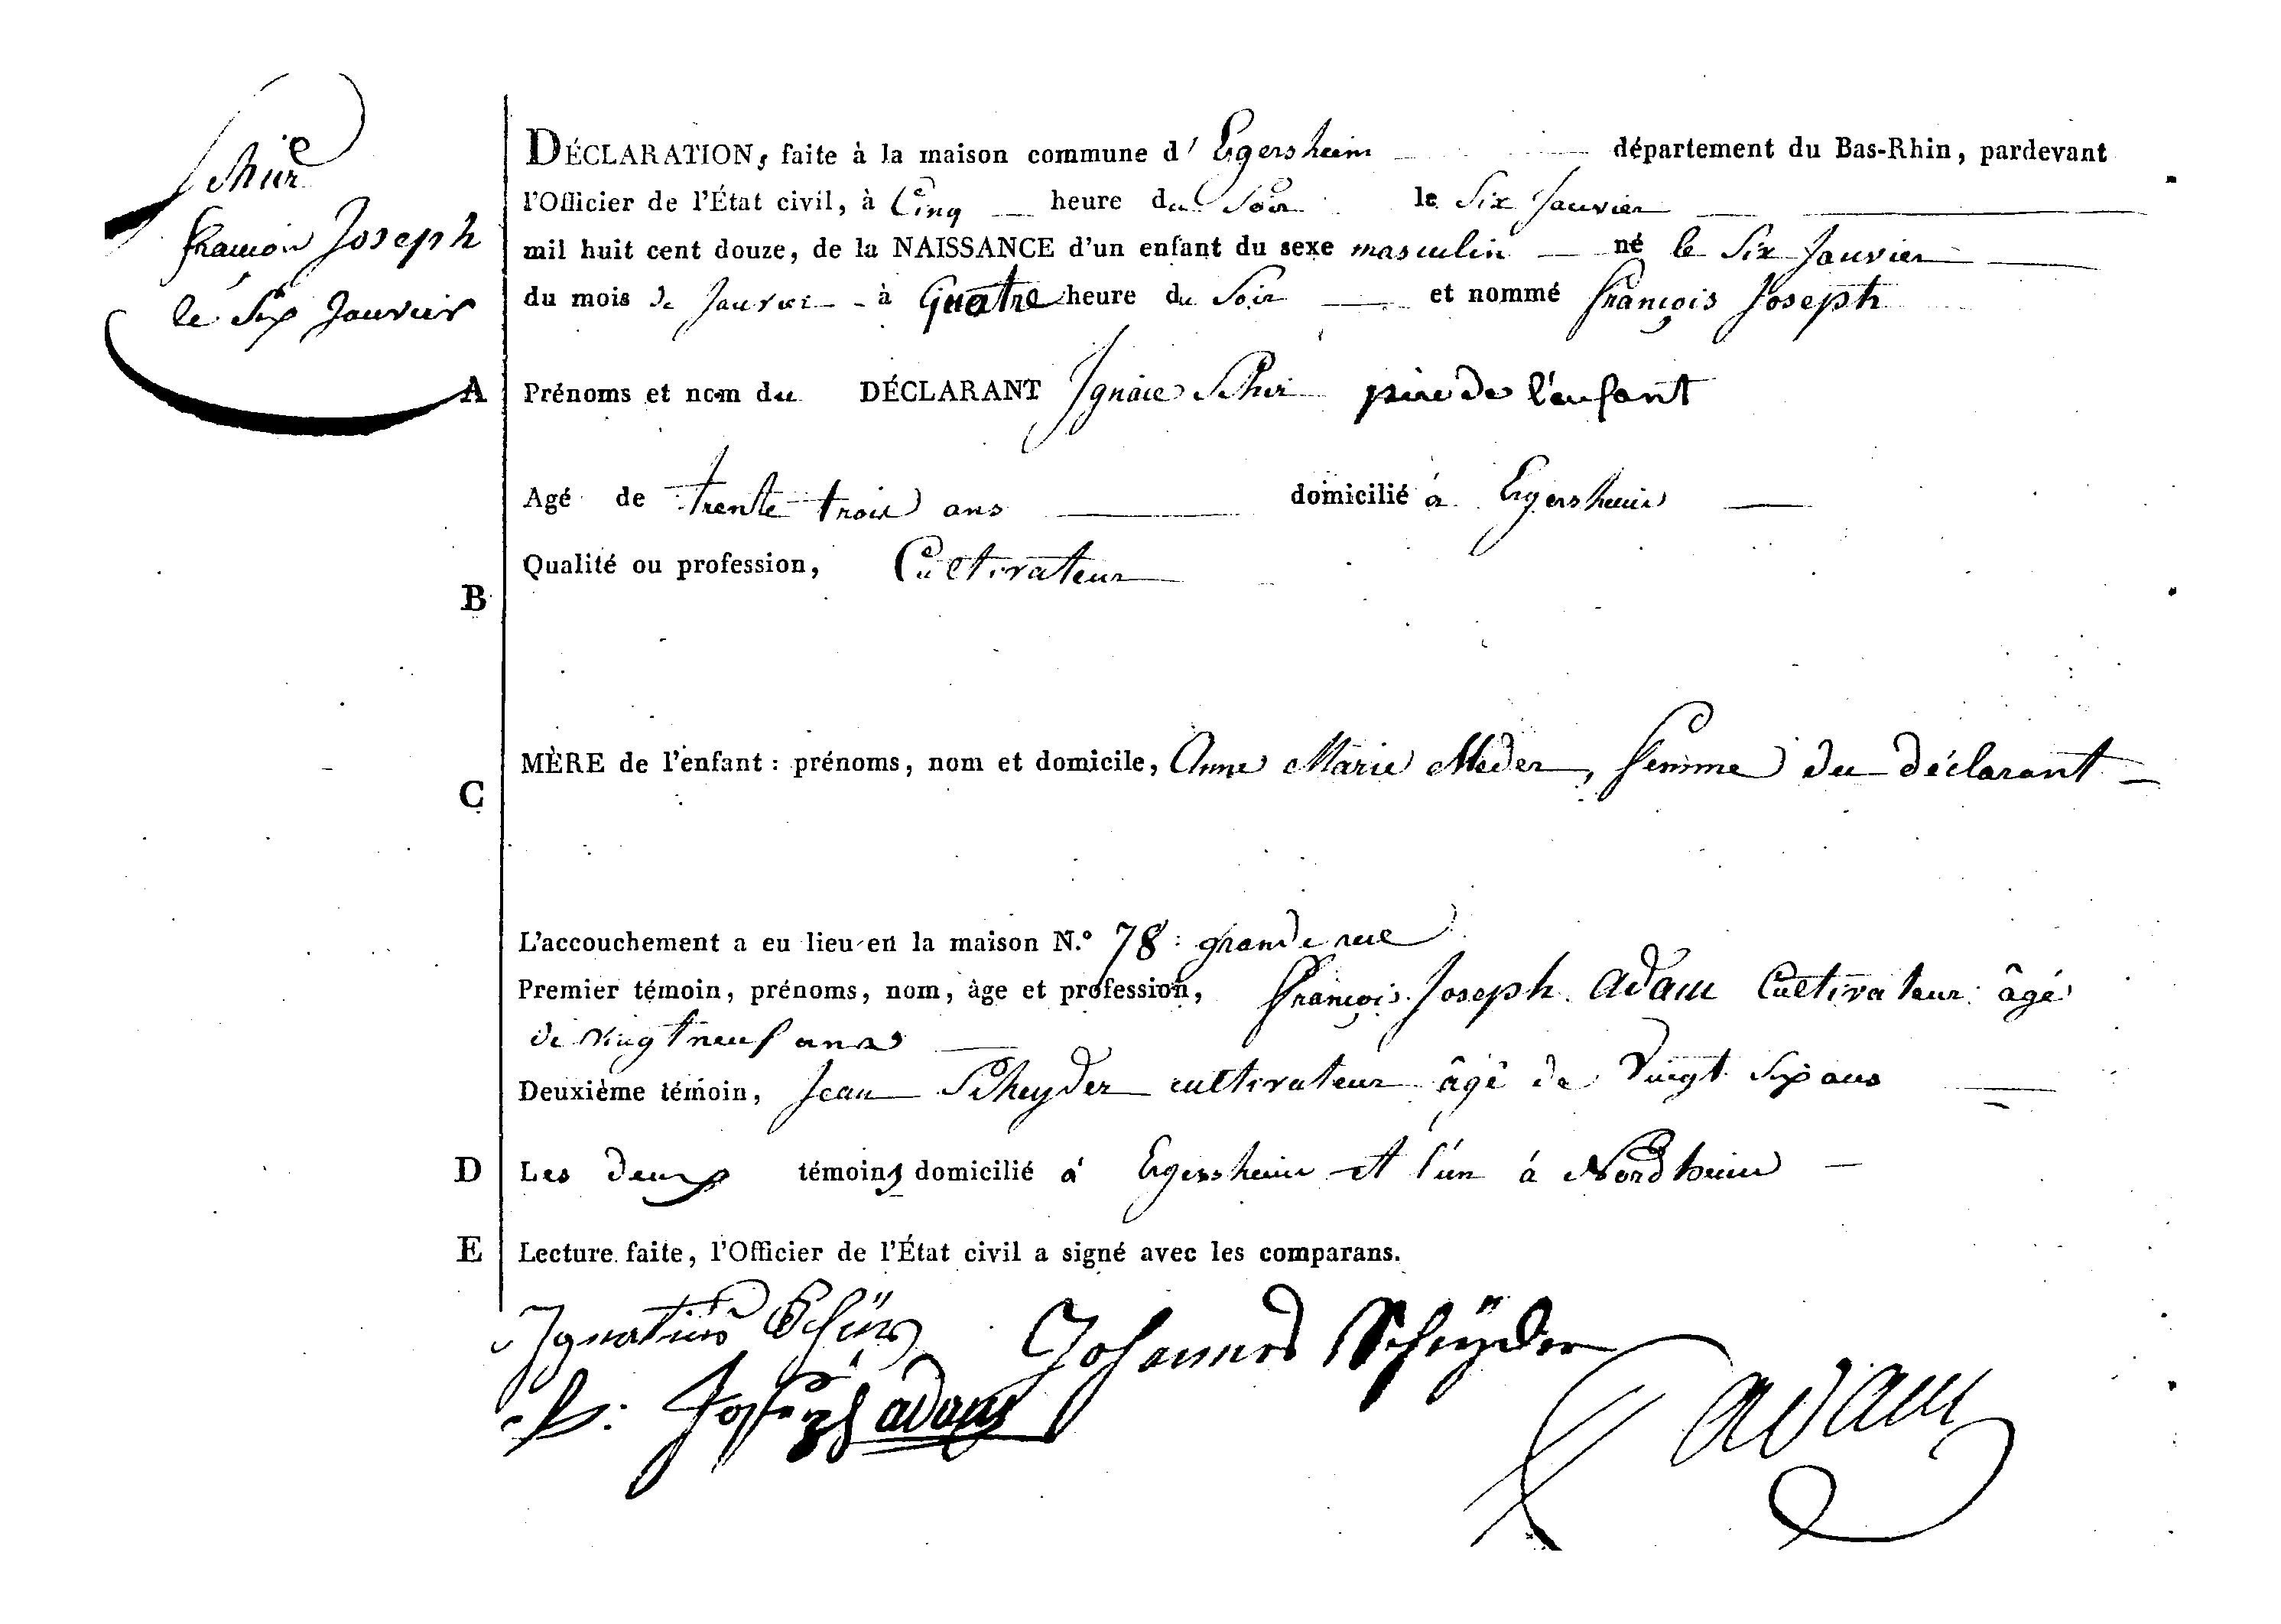 Schir
françois Joseph
le Six Janvier
DÉCLARATION, faite à la maison commune d' Egersheim département du Bas-Rhin, pardevant
l'Officier de l'État civil, à Cinq heure du Soir le Six Janvier
mil huit cent douze, de la NAISSANCE d'un enfant du sexe masculin né le Six Janvier
du mois de Janvier à Quatre heure du Soir et nommé françois Joseph
A Prénoms et nom du DÉCLARANT Ignace Schir père de l'enfant
Agé de trente trois ans domicilié à Egersheim
Qualité ou profession, Cultivateur
B
MÈRE de l'enfant : prénoms, nom et domicile, Anne Marie Meder, femme du déclarant
C
L'accouchement a eu lieu en la maison N.° 78 : grande rue
Premier témoin, prénoms, nom, âge et profession, françois Joseph adam Cultivateur âgé
de vingt neuf ans
Deuxième témoin, Jean Scheyder cultivateur âgé de Vingt Six ans
D Les deux témoins domicilié à Egersheim et l'un à Nordheim
E Lecture faite, l'Officier de l'État civil a signé avec les comparans.
Ignatius Schür Johannes Scheÿder
Joseph adam adam